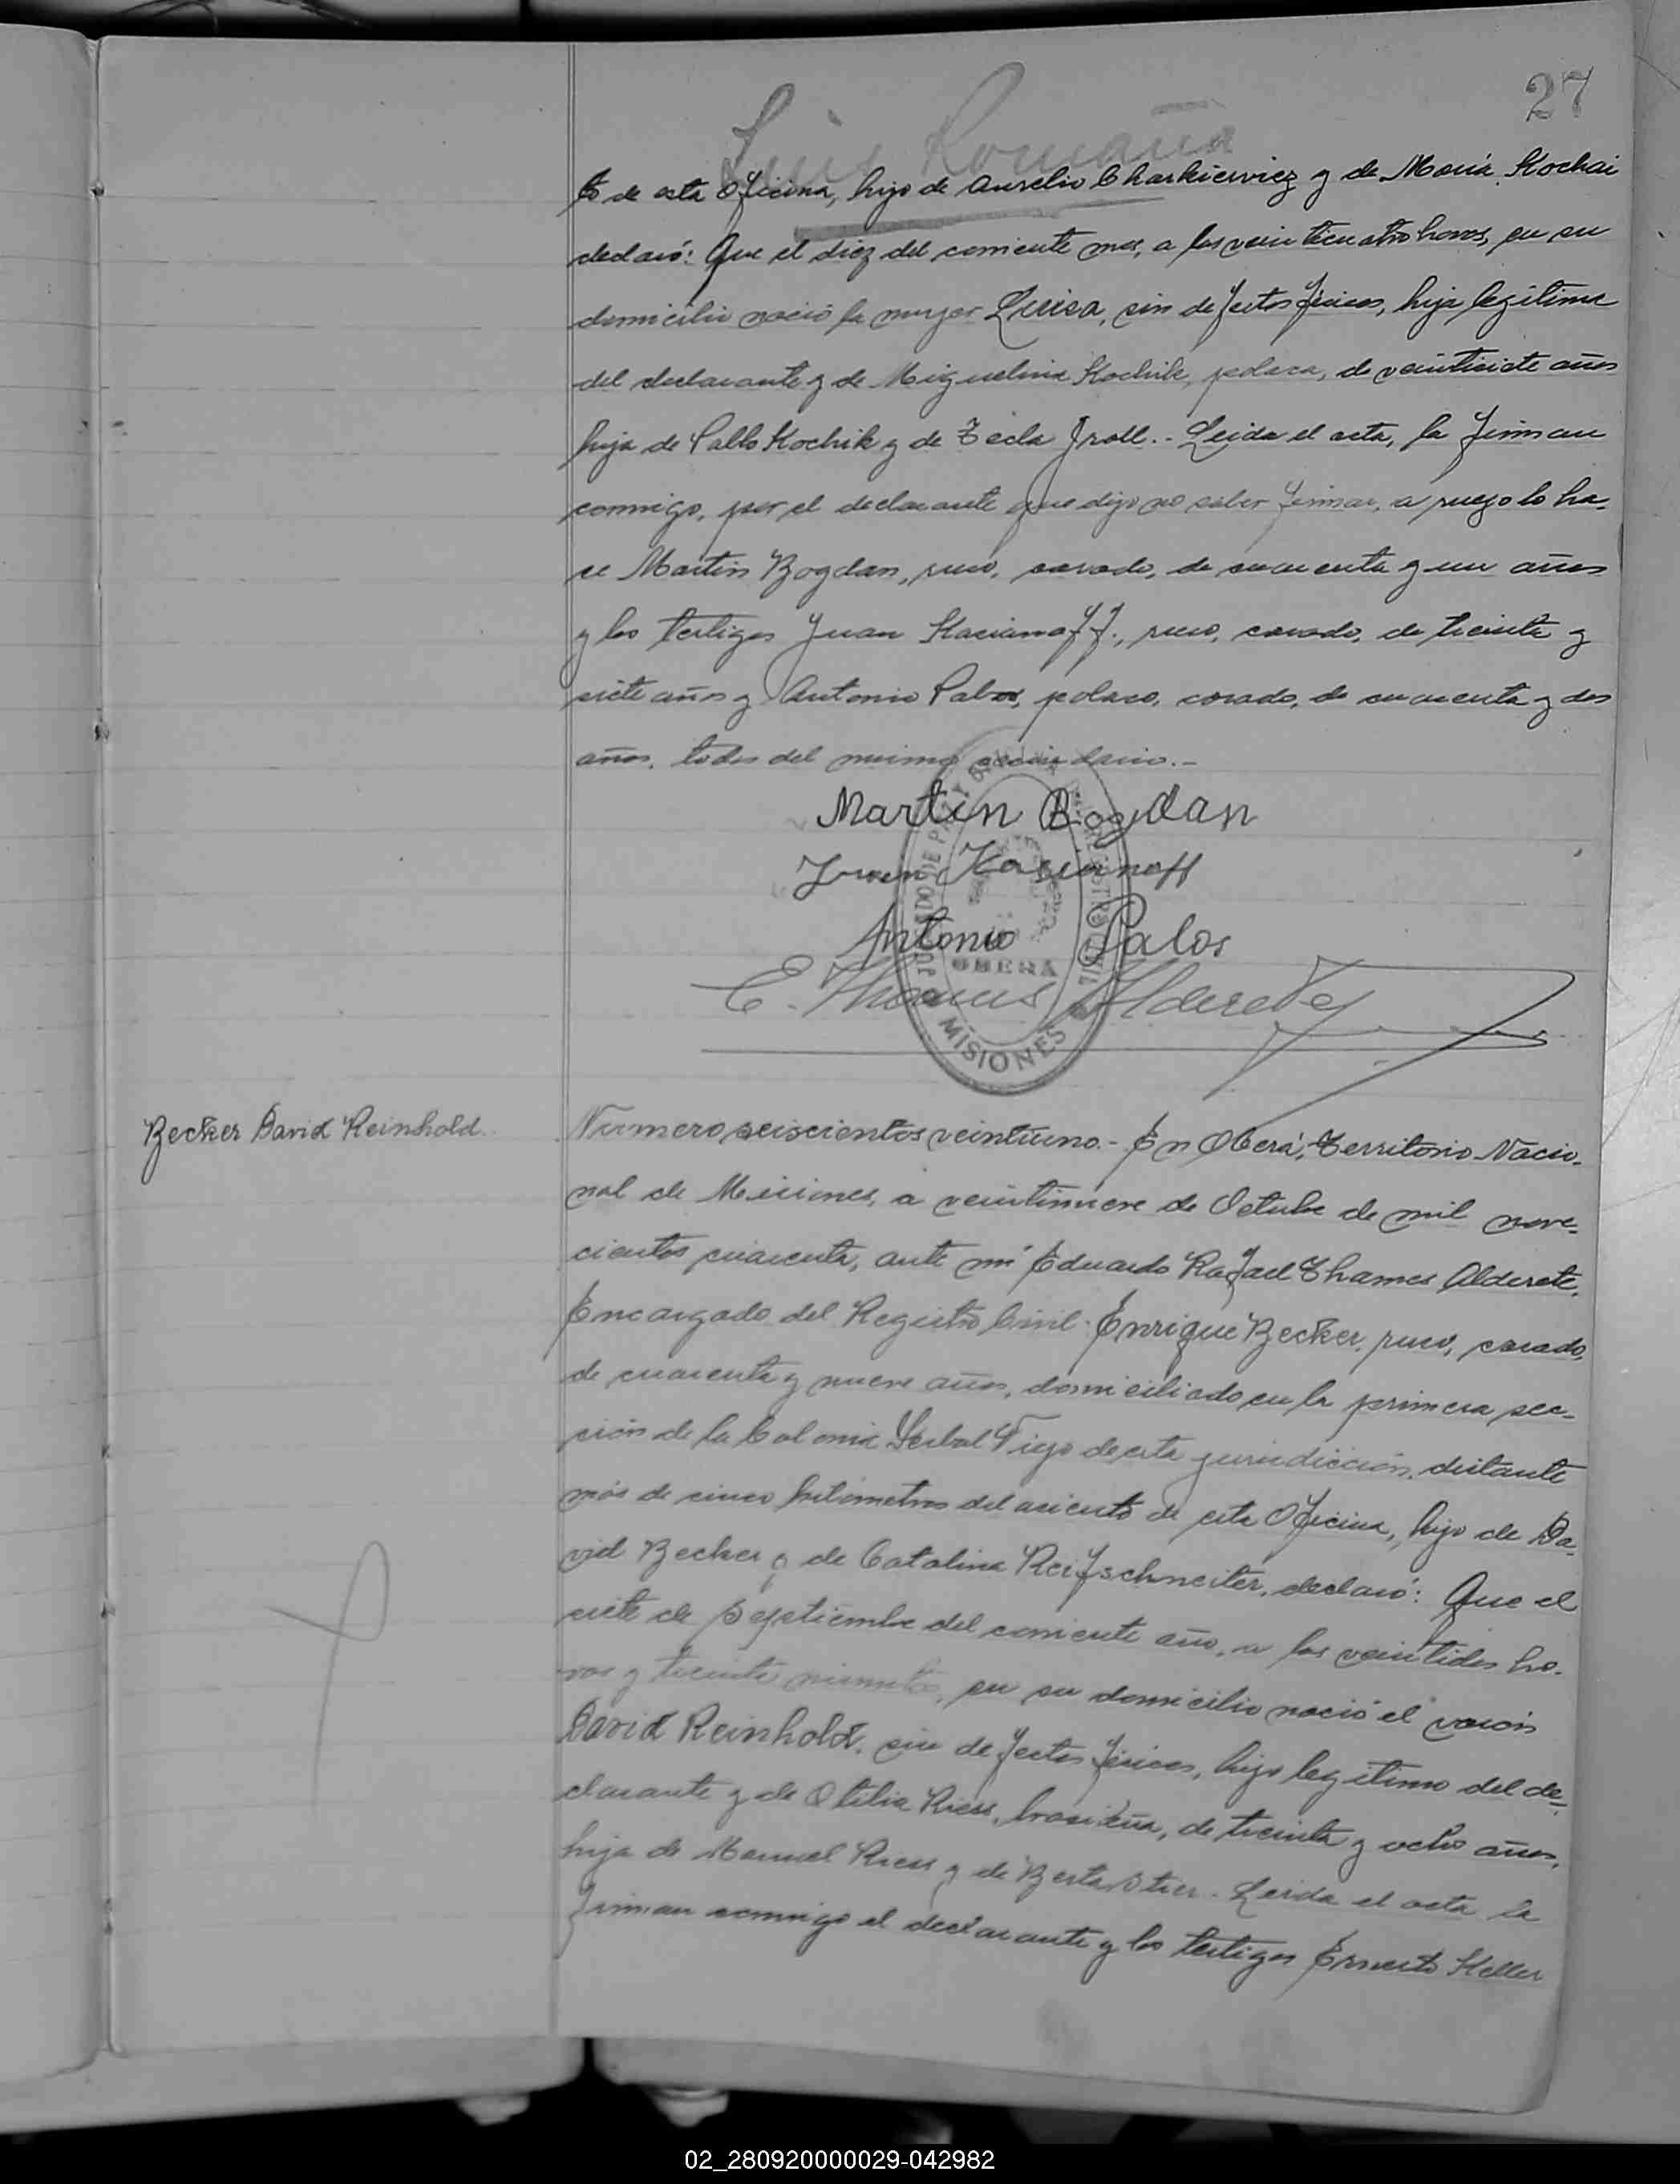 27
Luis Romaña
to de esta Oficina, hijo de Aurelio Charkieviez y de María Kochai
declaró: Que el diez del corriente mes, a las veinticuatro horas, en su
domicilio nació la mujer Luisa, sin defectos físicos, hija legítima
del declarante y de Miguelina Kochik, polaca, de veintisiete años
hija de Pablo Kochik y de Tecla Groll.- Leida el acta, la firman
conmigo, por el declarante que dijo no saber firmar, a ruego lo ha-
ce Martin Bogdan, ruso, casado, de cuarenta y un años
y los testigos Juan Kacianoff, ruso, casado, de treinta y
siete años y Antonio Palos, polaco, casado, de cuarenta y dos
años, todos del mismo vecindario.-
Martin Bogdan
Juan Kasianoff
Antonio Palos
E. Thames Alderete
JUZGADO DE PAZ Y REGISTRO CIVIL
OBERA
MISIONES
Becker David Reinhold.
Número seiscientos veintiuno.- En Oberá, Territorio Nacio-
nal de Misiones, a veintinueve de Octubre de mil nove-
cientos cuarenta, ante mí Eduardo Rafael Thames Alderete,
Encargado del Registro Civil. Enrique Becker, ruso, casado,
de cuarenta y nueve años, domiciliado en la primera sec-
ción de la Colonia Yerbal Viejo de esta jurisdicción, distante
más de cinco kilómetros del asiento de esta Oficina, hijo de Da-
vid Becker y de Catalina Reifschneiter, declaró: Que el
siete de Septiembre del corriente año, a las veintidos ho-
ras y treinta minutos, en su domicilio nació el varón
David Reinhold, sin defectos físicos, hijo legítimo del de-
clarante y de Otilia Riess, brasileña, de treinta y ocho años,
hija de Manuel Riess y de Berta Stier.- Leida el acta la
firman conmigo el declarante y los testigos Ernesto Keller
02_280920000029-042982